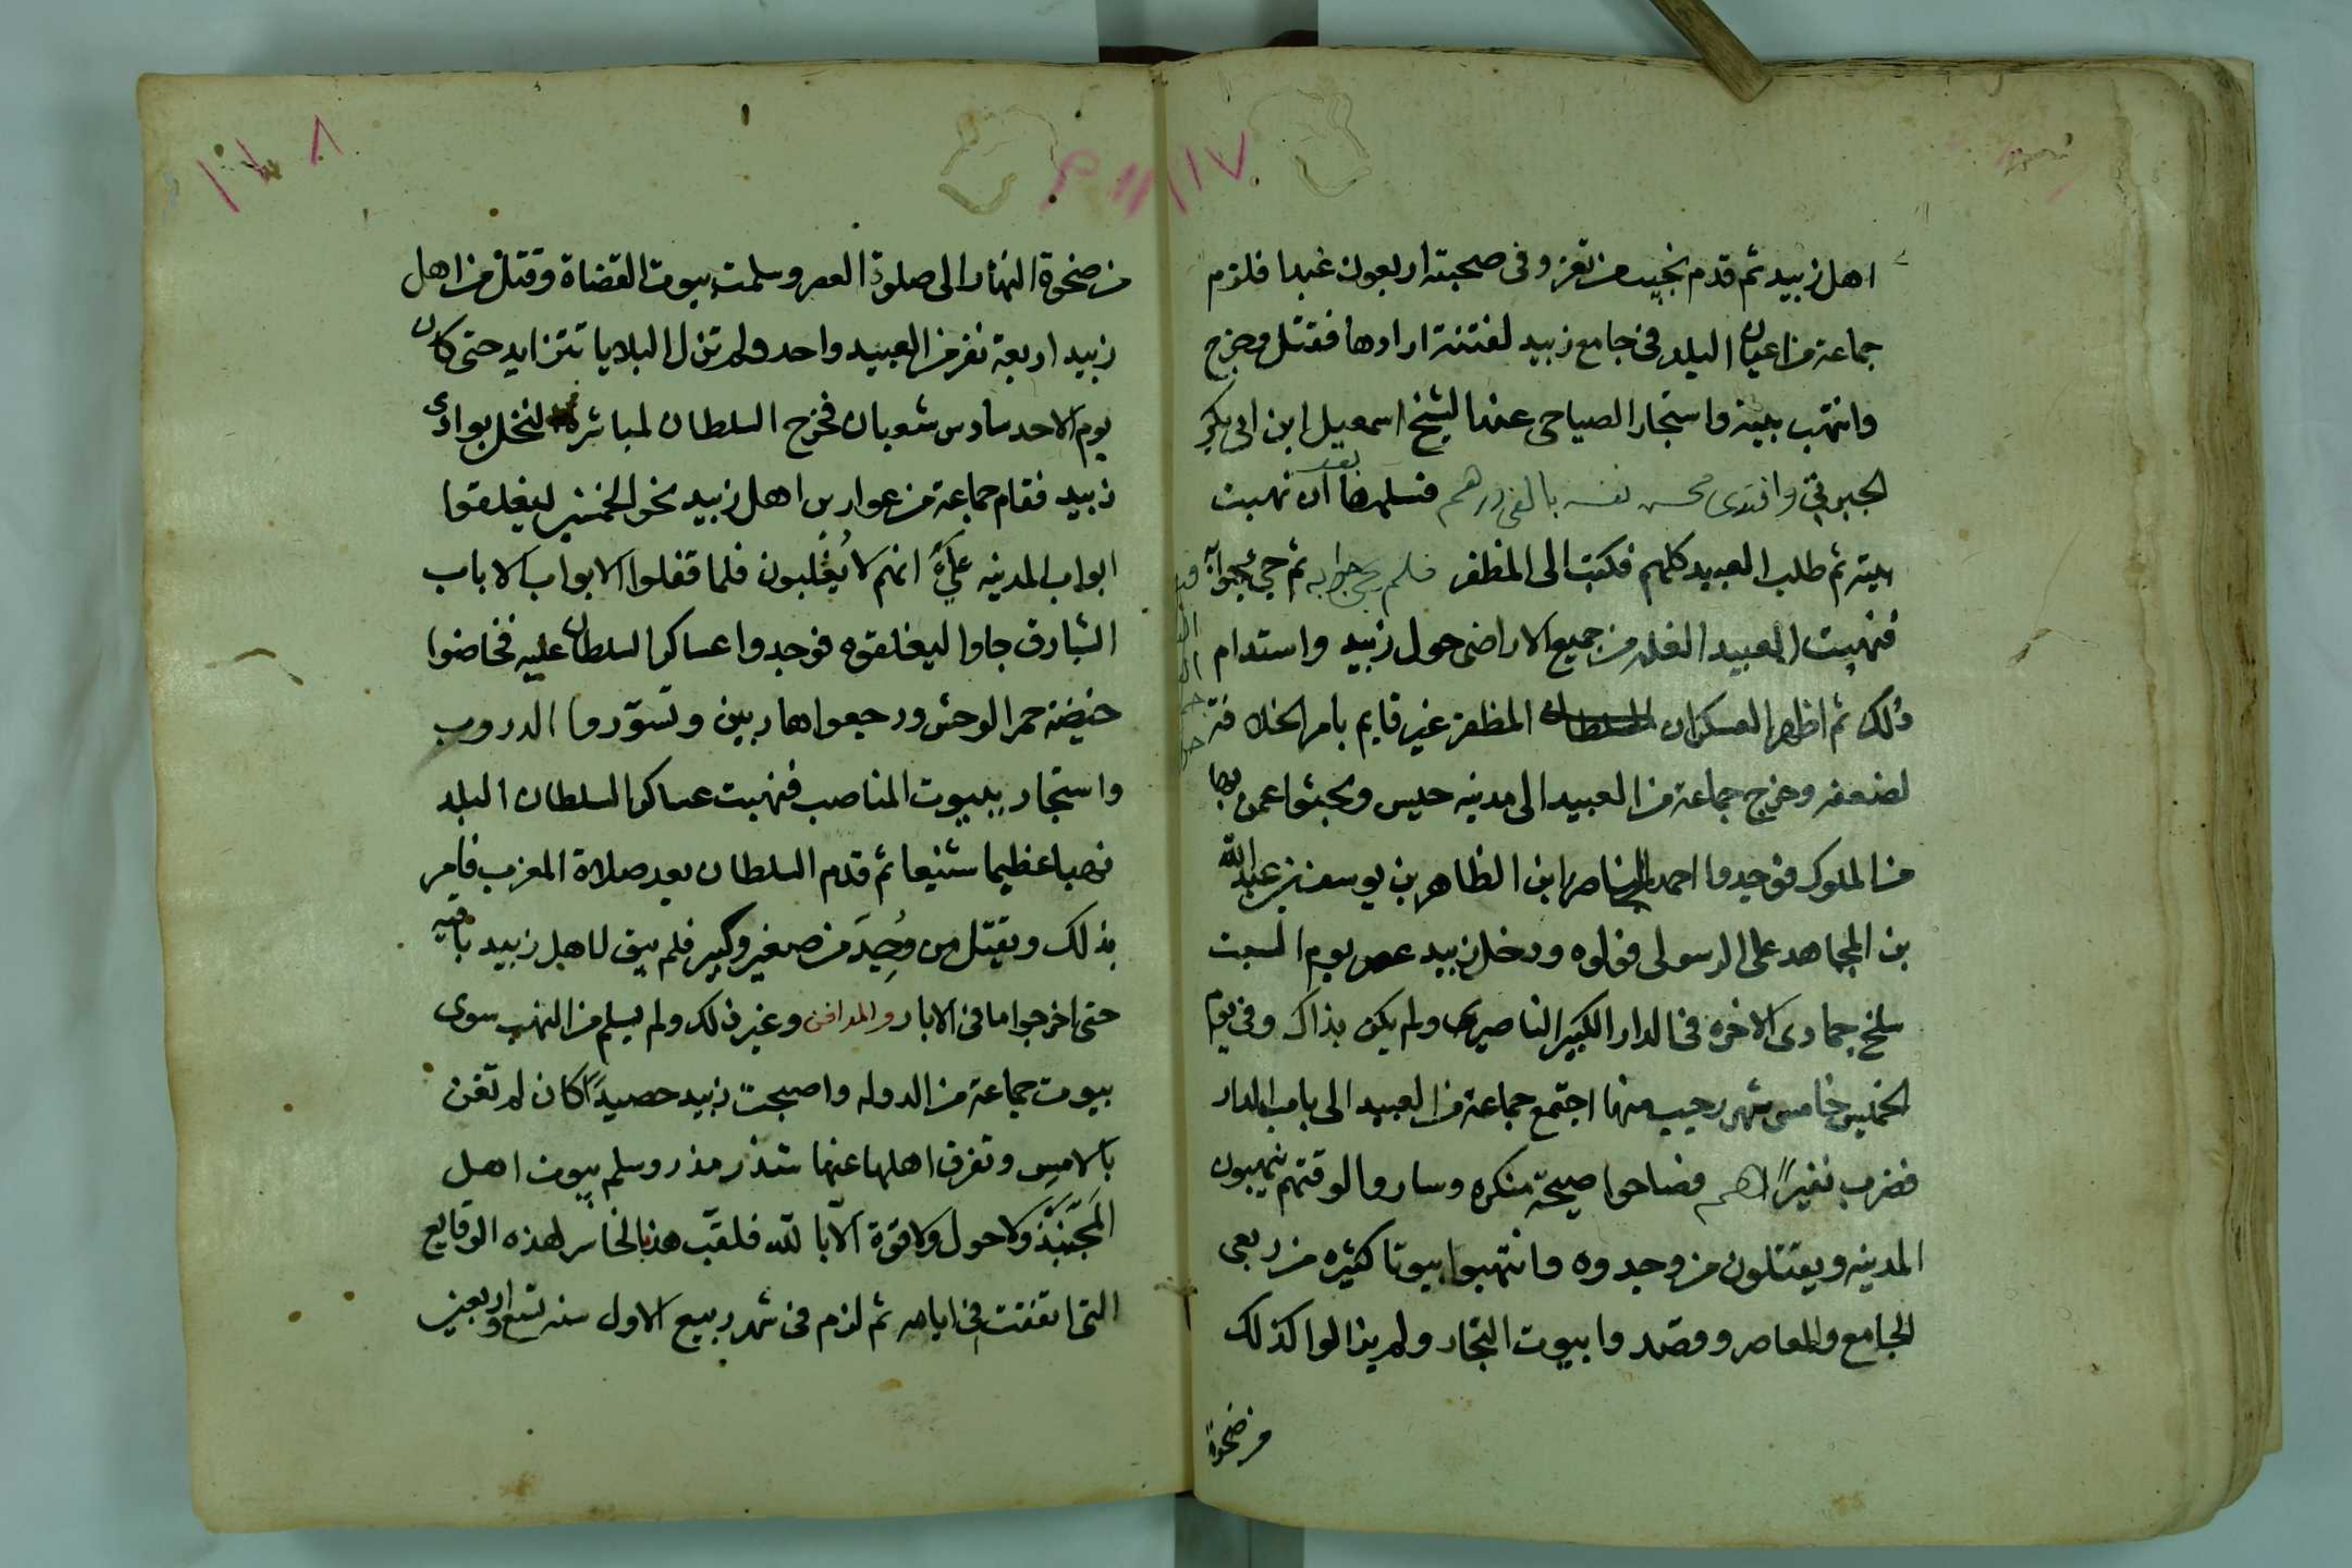 ١١٧
اهل زبيد ثم قدم نجيب من تعز وفى صحبته اربعون عبدا فلزم
جماعة من اعيان البلد فى جامع زبيد لفتنة ارادها فقتل وخرج
وانتهب بيته واستجار الصياحى عند الشيخ اسمعيل ابن ابى بكر
الجبرتي وافتدى محسن نفسه بالفى درهم فسلمها بعد ان نهبت
بيته ثم طلب العبيد كلهم فكتب الى المظفر فلم يجئ جوابه ثم جئ بجوابه
فنهبت العبيد الغله من جميع الاراضى حول زبيد واستدام
ذلك ثم اظهر العسكر ان السلطان المظفر غير قايم بامر الخلافة
لضعفه وخرج جماعة من العبيد الى مدينه حيس وبحثوا عمن بها
من الملوك فوجدوا احمد الناصر ابن الظاهر بن يوسف بن عبدالله
بن المجاهد على الرسولى فولوه ودخل زبيد عصر يوم السبت
سلخ جمادى الاخره فى الدار الكبير الناصرى ولم يكن بذاك وفى يوم
الخميس خامس شهر رجب منها اجتمع جماعة من العبيد الى باب الدار
فضرب نفيرا لهم فصاحوا صيحة منكره وساروا لوقتهم ينهبون
المدينه ويقتلون من وجدوه وانتهبوا بيوتا كثيره من ربعى
الجامع والمعاصر وقصدوا بيوت التجار ولم يزالوا كذلك
من ضحوة
١١٨
من ضحوة النهار الى صلوة العصر وسلمت بيوت القضاة وقتل من اهل
زبيد اربعة نفر من العبيد واحد ولم تزل البلايا تتزايد حتى كان
يوم الاحد سادس شعبان فخرج السلطان لمباشرة النخل بوادى
زبيد فقام جماعة من عوارين اهل زبيد نحو الخمسين ليغلقوا
ابواب المدينه على انهم لا يغلبون فلما قفلوا الابواب الا باب
الشبارق جاوا ليغلقوه فوجدوا عساكر السلطان عليه فحاضوا
حيضة حمر الوحش ورجعوا هاربين وتسوروا الدروب
واستجار ببيوت المناصب فنهبت عساكر السلطان البلد
نهبا عظيما شنيعا ثم قدم السلطان بعد صلاة المغرب فامر
بذلك وبقتل من وُجِدَ من صغير وكبير فلم يبق لاهل زبيد باقيه
حتى اخرجوا ما فى الابار والمدافن وغير ذلك ولم يسلم من النهب سوى
بيوت جماعة من الدوله واصبحت زبيد حصيدًا كان لم تغن
بالامس وتفرق اهلها عنها شذر مذر وسلم بيوت اهل
المَجَنْبَذ ولا حول ولا قوة الا بالله فلقب هذا بالخاسر لهذه الوقايع
التى اتفقت فى ايامه ثم لزم فى شهر ربيع الاول سنه تسع واربعين